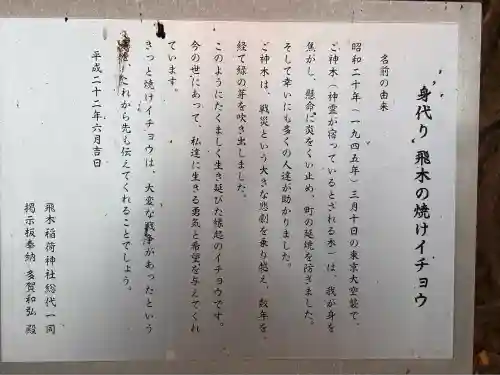 身代り 飛木の焼けイチョウ
名前の由来
昭和二十年(一九四五年)三月十日の東京大空襲で、
ご神木(神霊が宿っているとされる木)は、我が身を
焦がし、懸命に炎をくい止め、町の延焼を防ぎました。
そして幸いにも多くの人達が助かりました。
ご神木は、戦災という大きな悲劇を乗り越え、数年を
経て緑の芽を吹き出しました。
このようにたくましく生き延びた縁起のイチョウです。
今の世にあって、私達に生きる勇気と希望を与えてくれ
ています。
きっと焼けイチョウは、大変な戦争があったという
これから先も伝えてくれることでしょう。
平成二十二年六月吉日
飛木稲荷神社総代一同
掲示板奉納 多賀和弘 殿